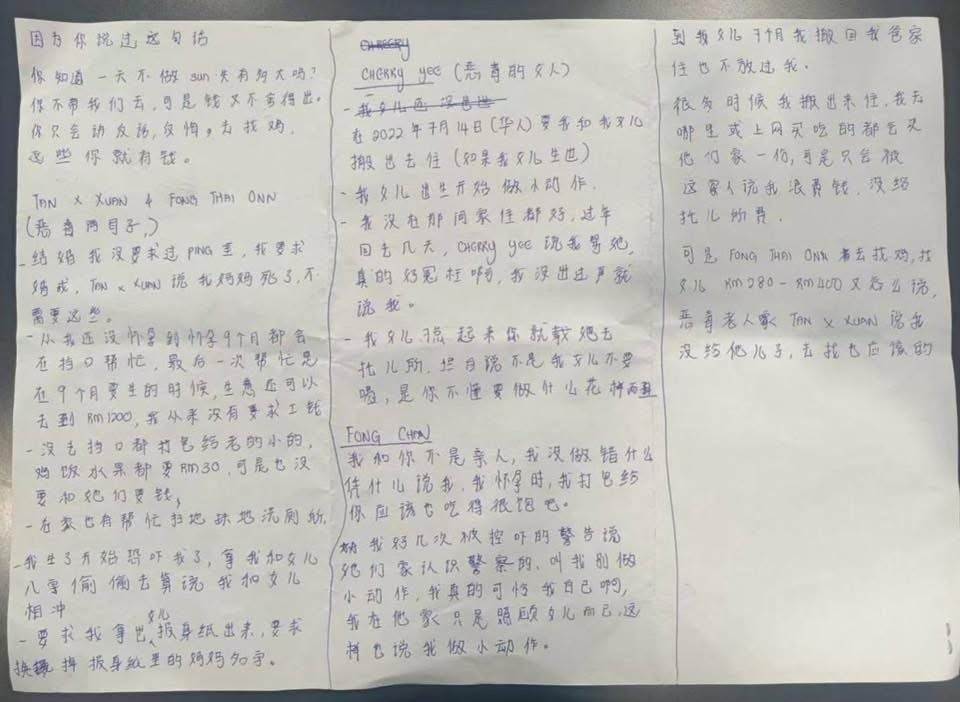 因为你说过这句话
你知道一天不做 sun 失有多大吗?
你不带我们去,可是钱又不舍得出。
你只会动皮诱,皮悄。去找鸡,
这些你就有钱。
TAN X XUAN & FONG THAI ONN
(恶毒两母子,)
- 结婚我没要求过PING 金,我要求
妈戒,TAN X XUAN 说我妈妈死了,不
需要这些。
- 从我还没怀孕到怀孕9个月都会
在挡口帮忙,最后一次帮忙是
在9个月要生的时候,生意还可以
去到 RM1200,我从来没有要求工钱
- 没去挡口都打包给老的小的,
鸡饭水果都要RM30,可是也没
要和她们要钱,
- 在家也有帮忙扫地抹地洗厕所,
- 我生了开始恐吓我了,拿我和女儿
八字偷偷去算说我和女儿
相冲
- 要求我拿出女儿报身纸出来,要求
换掉报身纸里的妈妈名字。
CHERRY YEE (恶毒的女人)
- 我女儿还没出世
在2022年7月14日(华人)要我和我女儿
搬出去住(如果我女儿生出)
- 我女儿出生开始做小动作,
- 我没在那间家住都好,过年
回去几天,CHERRY YEE 说我骂她,
真的好冤枉啊,我没出过声就
说我。
- 我女儿凉起来你就载她去
托儿所,拦自说不是我女儿不要
喝,是你不懂要做什么花样而已
FONG CHAN
我和你不是亲人,我没做错什么
凭什么说我,我怀孕时,我打包给
你应该也吃得很饱吧。
我好几次被控吓的警告说
她们家认识警察的,叫我别做
小动作,我真的可怜我自己啊,
我在他家只是照顾女儿而已,这
样也说我做小动作。
到我女儿7个月我搬回我爸家
住也不放过我。
很多时候我搬出来住,我去
哪里或上网买吃的都会买
他们家一份,可是只会被
这家人说我浪费钱,没给
托儿所费。
可是 FONG THAI ONN 去找鸡,找
女儿 RM280 - RM400又怎么说,
恶毒老人家 TAN X XUAN 说我
没给他儿子,去找也应该的